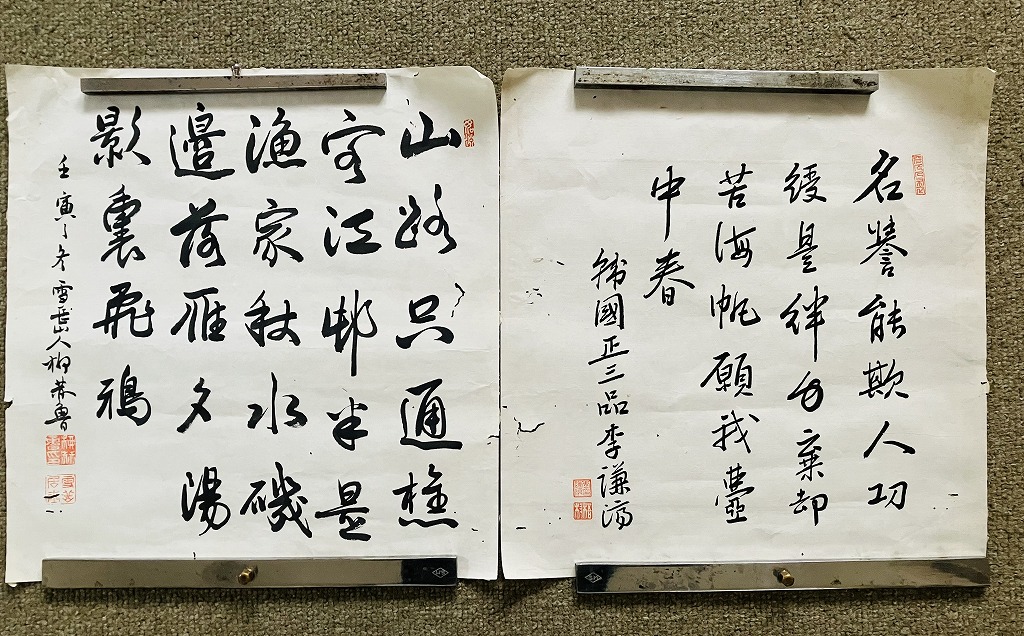 名譽能欺人功
綬是絆身棄却
苦海帆願我壺
中春
韓國正三品李謙濟
山路只通樵
客江邨半是
漁家秋水磯
邊落雁夕陽
影裏飛鴉
壬寅冬雪岳山人柳魯